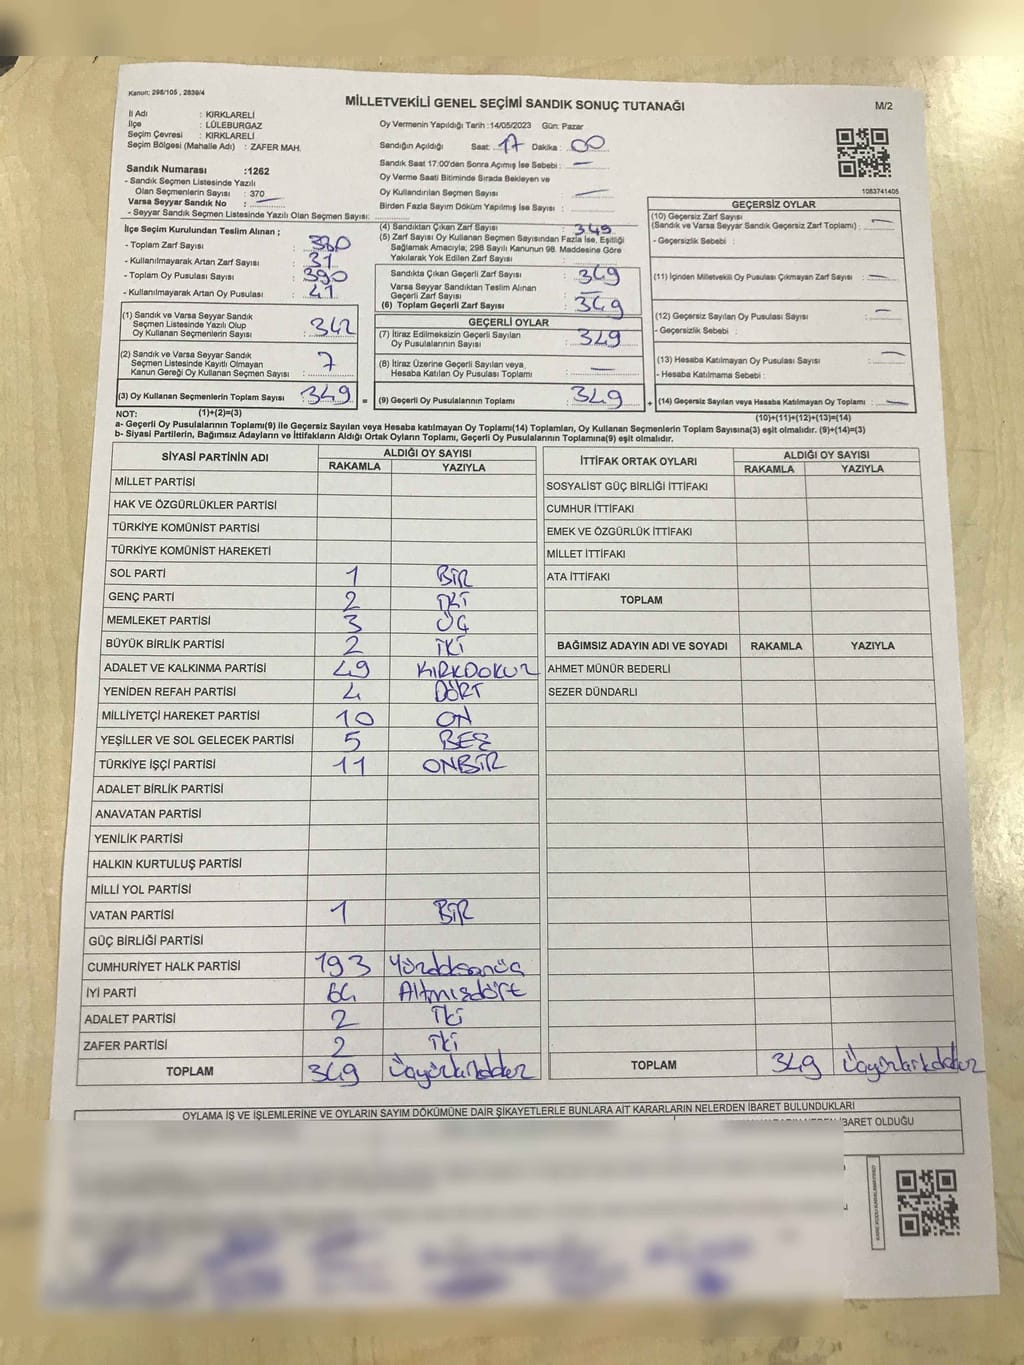 Kanun; 298/105 , 2839/4
MİLLETVEKİLİ GENEL SEÇİMİ SANDIK SONUÇ TUTANAĞI
M/2
İl Adı : KIRKLARELİ
İlçe : LÜLEBURGAZ
Seçim Çevresi : KIRKLARELİ
Seçim Bölgesi (Mahalle Adı) : ZAFER MAH.
Sandık Numarası :1262
- Sandık Seçmen Listesinde Yazılı
Olan Seçmenlerin Sayısı : 370
Varsa Seyyar Sandık No : —
- Seyyar Sandık Seçmen Listesinde Yazılı Olan Seçmen Sayısı:
Oy Vermenin Yapıldığı Tarih :14/05/2023 Gün: Pazar
Sandığın Açıldığı Saat: 17 Dakika : 00
Sandık Saat 17:00'den Sonra Açımış İse Sebebi : —
Oy Verme Saati Bitiminde Sırada Bekleyen ve
Oy Kullandırılan Seçmen Sayısı : —
Birden Fazla Sayım Döküm Yapılmış İse Sayısı :
1083741405
İlçe Seçim Kurulundan Teslim Alınan ;
- Toplam Zarf Sayısı : 380
- Kullanılmayarak Artan Zarf Sayısı : 31
- Toplam Oy Pusulası Sayısı : 390
- Kullanılmayarak Artan Oy Pusulası : 41
(1) Sandık ve Varsa Seyyar Sandık
Seçmen Listesinde Yazılı Olup
Oy Kullanan Seçmenlerin Sayısı : 342
(2) Sandık ve Varsa Seyyar Sandık
Seçmen Listesinde Kayıtlı Olmayan
Kanun Gereği Oy Kullanan Seçmen Sayısı : 7
(3) Oy Kullanan Seçmenlerin Toplam Sayısı : 349 =
(4) Sandıktan Çıkan Zarf Sayısı : 349
(5) Zarf Sayısı Oy Kullanan Seçmen Sayısından Fazla İse, Eşitliği
Sağlamak Amacıyla; 298 Sayılı Kanunun 98. Maddesine Göre
Yakılarak Yok Edilen Zarf Sayısı :
Sandıkta Çıkan Geçerli Zarf Sayısı : 349
Varsa Seyyar Sandıktan Teslim Alınan
Geçerli Zarf Sayısı : —
(6) Toplam Geçerli Zarf Sayısı : 349
GEÇERLİ OYLAR
(7) İtiraz Edilmeksizin Geçerli Sayılan
Oy Pusulalarının Sayısı : 349
(8) İtiraz Üzerine Geçerli Sayılan veya
Hesaba Katılan Oy Pusulası Toplamı : —
(9) Geçerli Oy Pusulalarının Toplamı : 349 +
GEÇERSİZ OYLAR
(10) Geçersiz Zarf Sayısı
(Sandık ve Varsa Seyyar Sandık Geçersiz Zarf Toplamı) : —
- Geçersizlik Sebebi :
(11) İçinden Milletvekili Oy Pusulası Çıkmayan Zarf Sayısı : —
(12) Geçersiz Sayılan Oy Pusulası Sayısı : —
- Geçersizlik Sebebi :
(13) Hesaba Katılmayan Oy Pusulası Sayısı : —
- Hesaba Katılmama Sebebi :
(14) Geçersiz Sayılan veya Hesaba Katılmayan Oy Toplamı : —
NOT: (1)+(2)=(3)
(10)+(11)+(12)+(13)=(14)
a- Geçerli Oy Pusulalarının Toplamı(9) ile Geçersiz Sayılan veya Hesaba katılmayan Oy Toplamı(14) Toplamları, Oy Kullanan Seçmenlerin Toplam Sayısına(3) eşit olmalıdır. (9)+(14)=(3)
b- Siyasi Partilerin, Bağımsız Adayların ve İttifakların Aldığı Ortak Oyların Toplamı, Geçerli Oy Pusulalarının Toplamına(9) eşit olmalıdır.
SİYASİ PARTİNİN ADI ALDIĞI OY SAYISI
RAKAMLA YAZIYLA
MİLLET PARTİSİ
HAK VE ÖZGÜRLÜKLER PARTİSİ
TÜRKİYE KOMÜNİST PARTİSİ
TÜRKİYE KOMÜNİST HAREKETİ
SOL PARTİ 1 BİR
GENÇ PARTİ 2 İKİ
MEMLEKET PARTİSİ 3 ÜÇ
BÜYÜK BİRLİK PARTİSİ 2 İKİ
ADALET VE KALKINMA PARTİSİ 49 KIRKDOKUZ
YENİDEN REFAH PARTİSİ 4 DÖRT
MİLLİYETÇİ HAREKET PARTİSİ 10 ON
YEŞİLLER VE SOL GELECEK PARTİSİ 5 BEŞ
TÜRKİYE İŞÇİ PARTİSİ 11 ONBİR
ADALET BİRLİK PARTİSİ
ANAVATAN PARTİSİ
YENİLİK PARTİSİ
HALKIN KURTULUŞ PARTİSİ
MİLLİ YOL PARTİSİ
VATAN PARTİSİ 1 BİR
GÜÇ BİRLİĞİ PARTİSİ
CUMHURİYET HALK PARTİSİ 193 Yüzdoksanüç
İYİ PARTİ 64 Altmışdört
ADALET PARTİSİ 2 İki
ZAFER PARTİSİ 2 İki
TOPLAM 349 Üçyüzkırkdokuz
İTTİFAK ORTAK OYLARI ALDIĞI OY SAYISI
RAKAMLA YAZIYLA
SOSYALİST GÜÇ BİRLİĞİ İTTİFAKI
CUMHUR İTTİFAKI
EMEK VE ÖZGÜRLÜK İTTİFAKI
MİLLET İTTİFAKI
ATA İTTİFAKI
TOPLAM
BAĞIMSIZ ADAYIN ADI VE SOYADI RAKAMLA YAZIYLA
AHMET MÜNÜR BEDERLİ
SEZER DÜNDARLI
TOPLAM 349 Üçyüzkırkdokuz
OYLAMA İŞ VE İŞLEMLERİNE VE OYLARIN SAYIM DÖKÜMÜNE DAİR ŞİKAYETLERLE BUNLARA AİT KARARLARIN NELERDEN İBARET BULUNDUKLARI
İBARET OLDUĞU